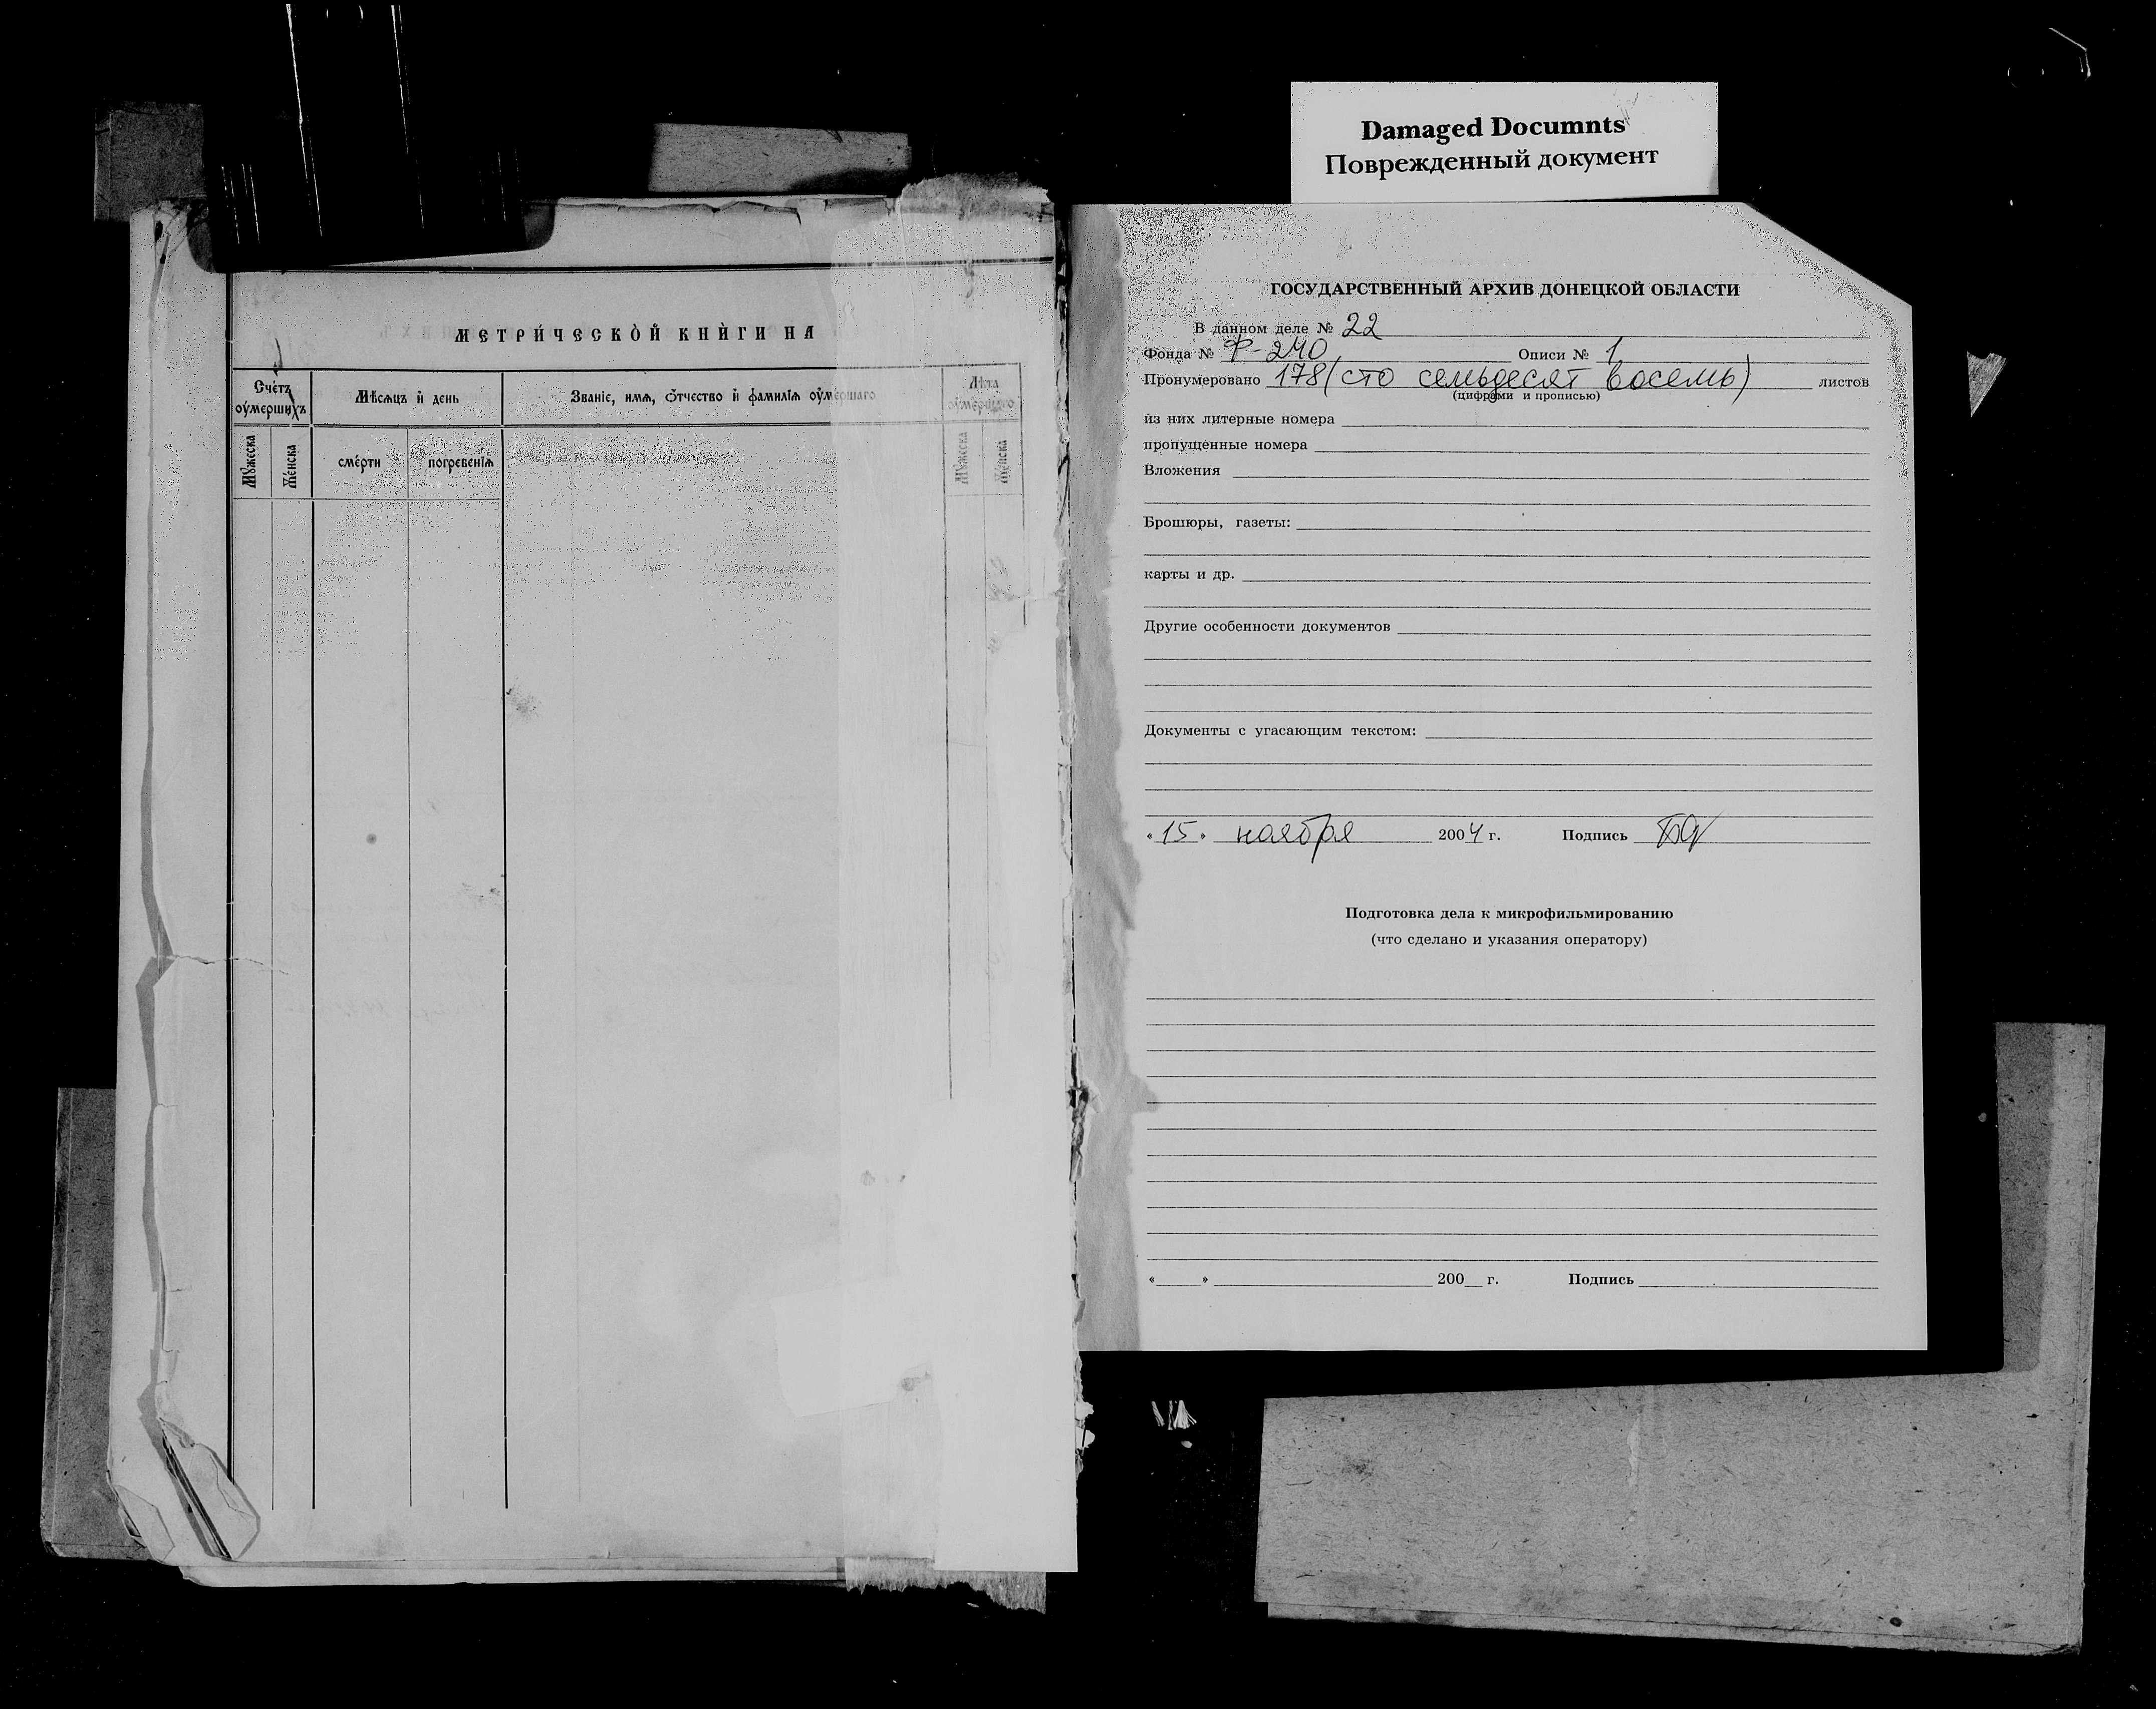 Damaged Documnts
Поврежденный документ
МЕТРИ́ЧЕСКО̀Й КНЍГИ НА
Сче́тъ ᲂу҆ме́ршихъ
Мѣ́сѧцъ и҆ день
Званїе, имѧ, ѻ҆́тчество и҆ фамилїѧ ᲂу҆ме́ршаго
Лѣ́та ᲂу҆ме́ршаго
Мꙋ́жеска
Же́нска
сме́рти
погребенїѧ
Мꙋ́жеска
Же́нска
ГОСУДАРСТВЕННЫЙ АРХИВ ДОНЕЦКОЙ ОБЛАСТИ
В данном деле № 22
Фонда № Ф-240, Описи № 1
Пронумеровано 178 (сто семьдесят восемь) листов
(цифрами и прописью)
из них литерные номера
пропущенные номера
Вложения
Брошюры, газеты:
карты и др.
Другие особенности документов
Документы с угасающим текстом:
«15» ноября 2004 г. Подпись
Подготовка дела к микрофильмированию
(что сделано и указания оператору)
« » 200 г. Подпись